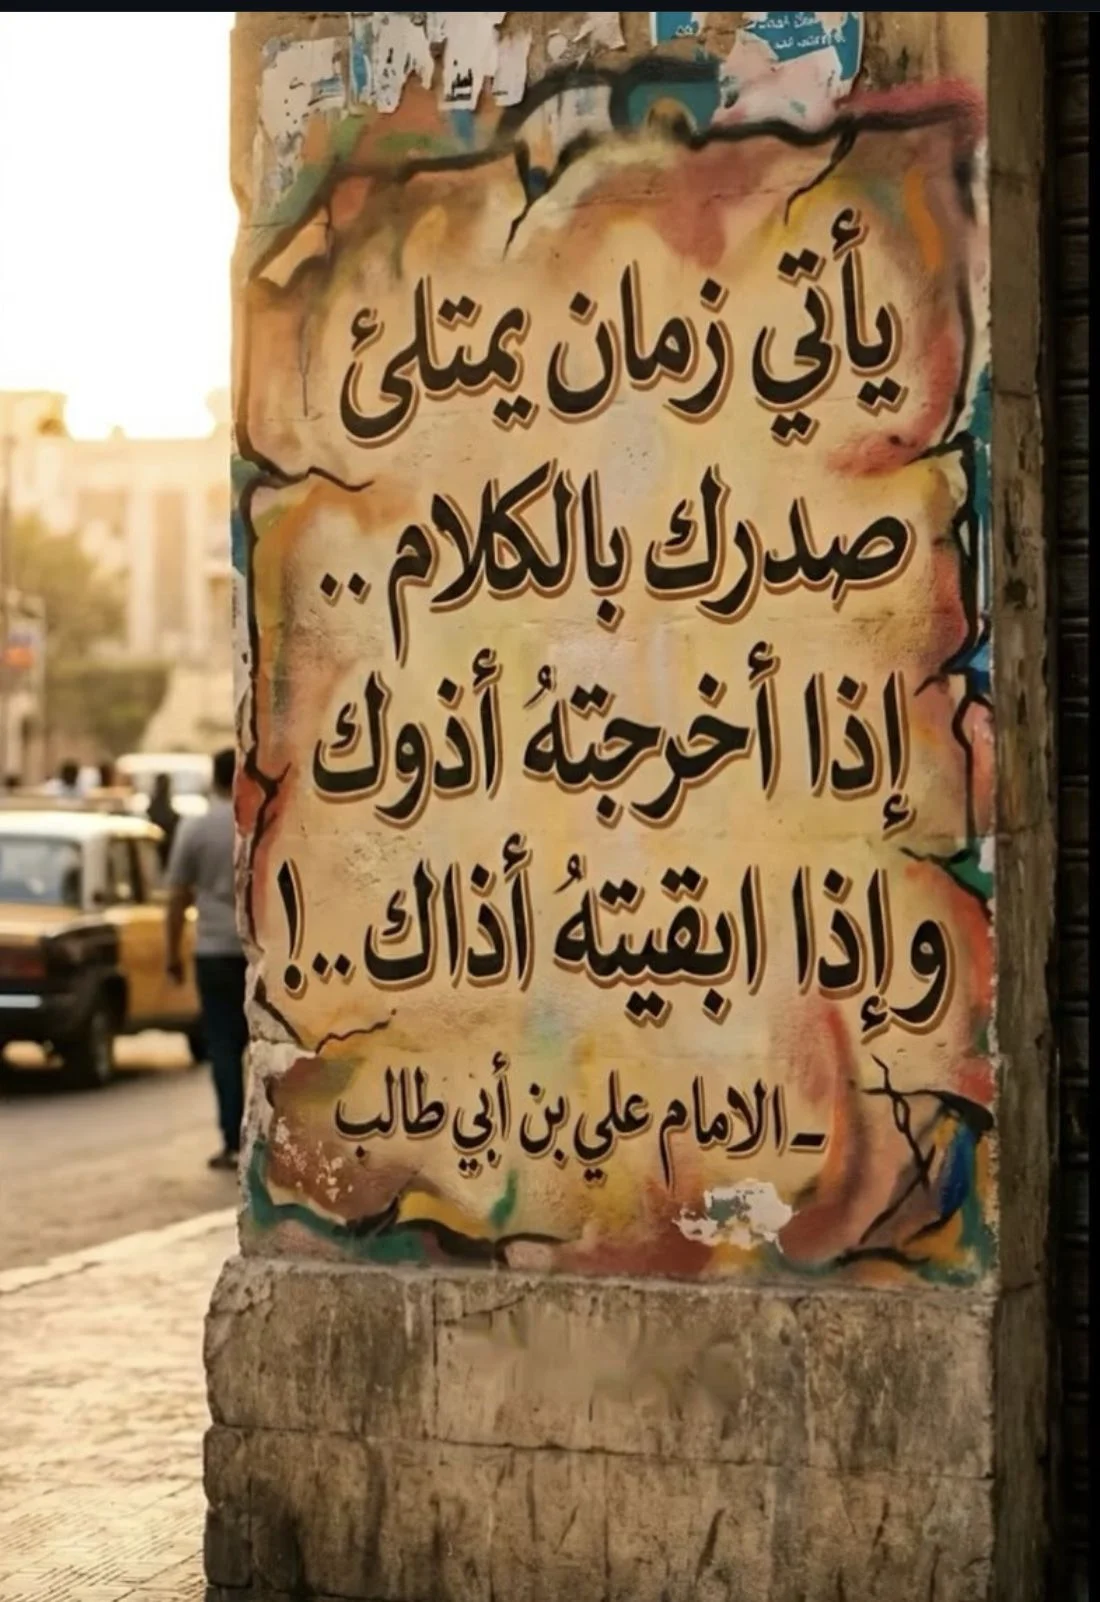 يأتي زمان يمتلئ
صدرك بالكلام ..
إذا أخرجتهُ أذوك
وإذا ابقيتهُ أذاك..!
ـ الامام علي بن أبي طالب